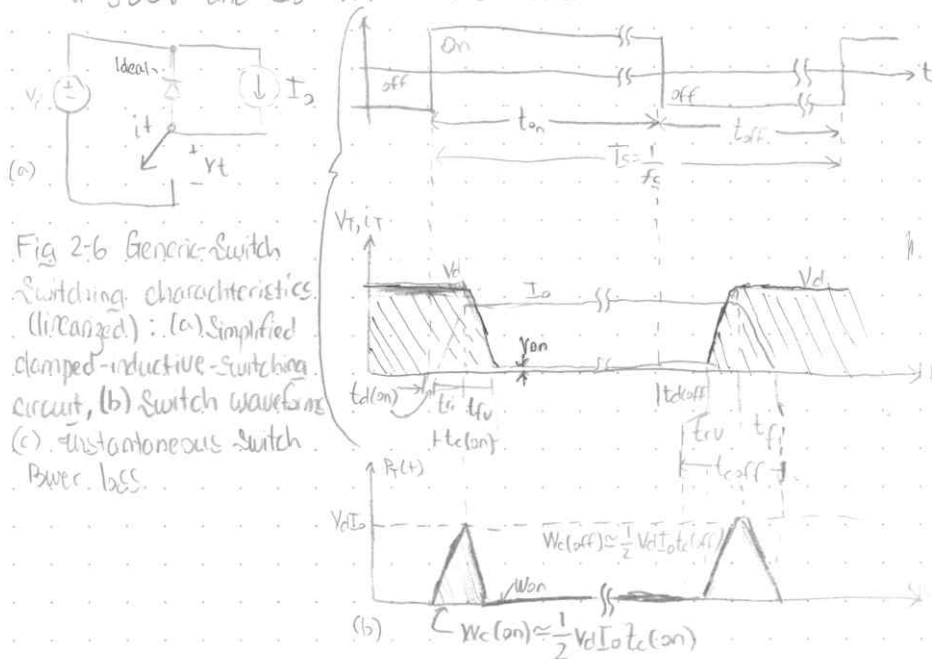 On
off
off
t
ton
toff
Ts=1/fs
Ideal
Io
it
+
Vt
-
(a)
Fig 2-6 Generic-Switch
Switching charachteristics
(linearized) : (a) Simplified
clamped-inductive-switching
circuit, (b) Switch waveforms
(c) instantaneous switch
Power loss
VT, iT
Vd
Io
Vd
Von
td(on)
tri
tfv
tc(on)
td(off)
trv
tf
tc off
PT(t)
VdIo
Wc(off)≃1/2 VdIo tc(off)
Won
(b)
Wc(on)≃1/2 VdIo tc(on)